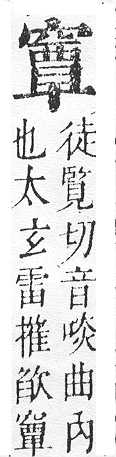 徒覽切音啖曲內
也太玄雷推欿